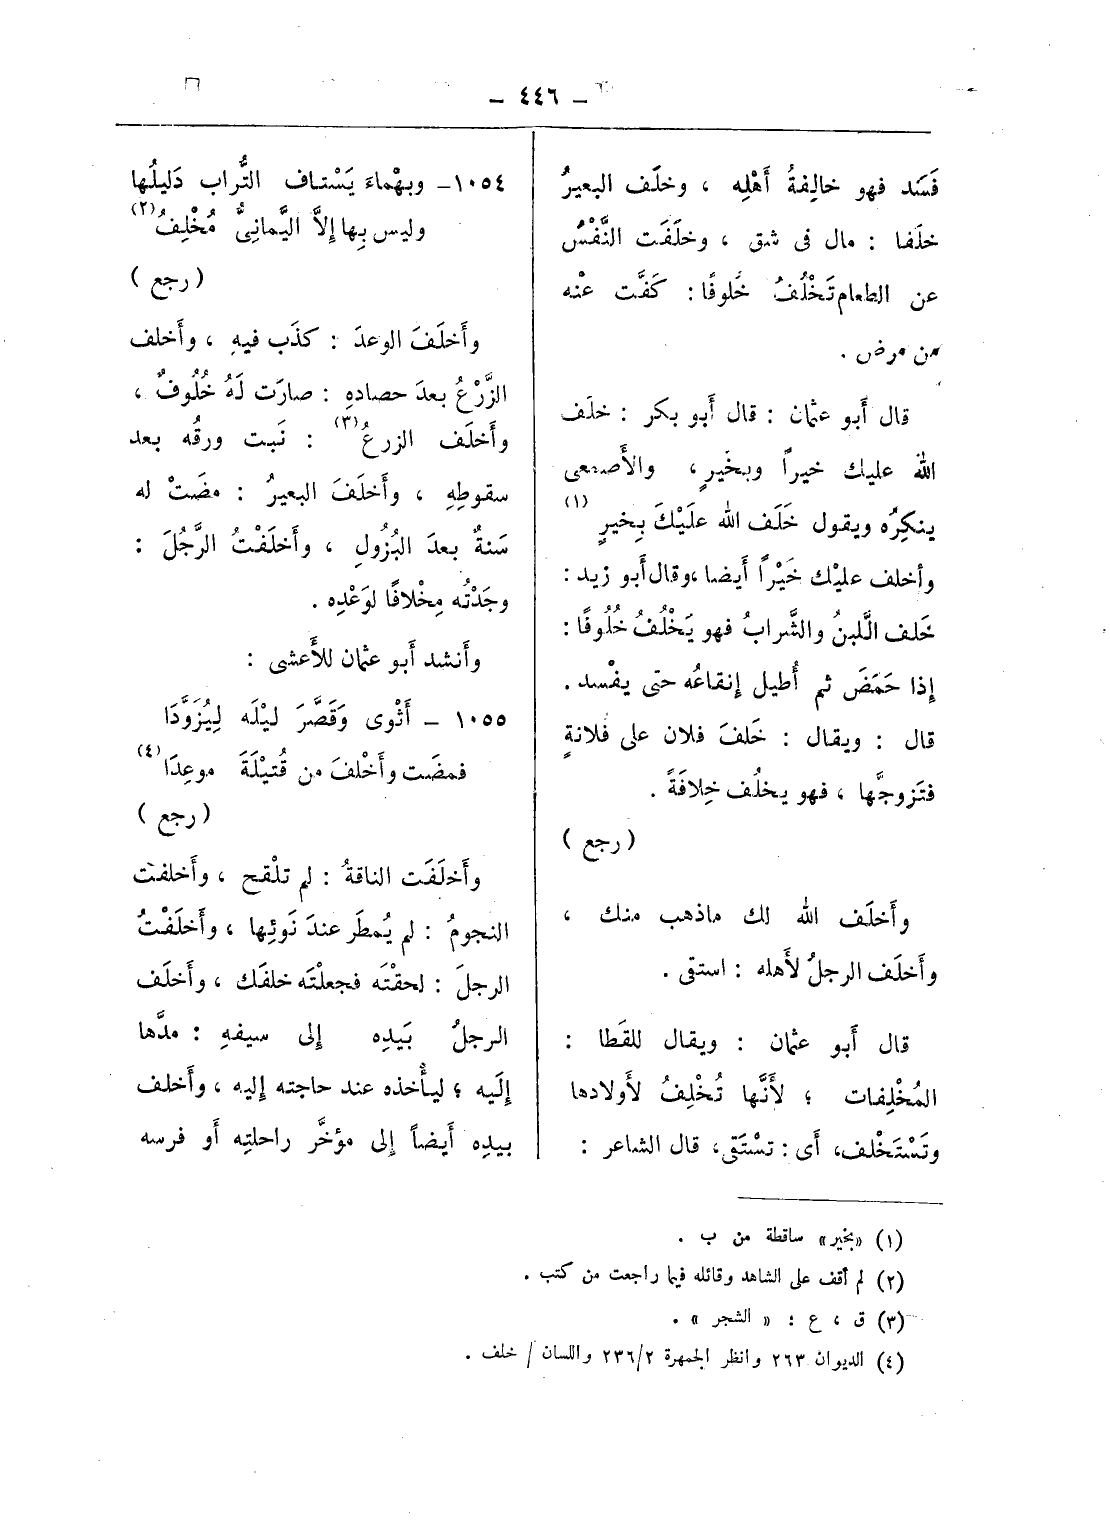 – ٤٤٦ –
فَسَد فهو خالِفةُ أَهْلِه ، وخلَف البعيرُ
خلَفا : مال فى شق ، وخلَفَت النَّفْسُ
عن الطعام تَخْلُفُ خُلوفًا : كَفَّت عنْه
من مرض .
قال أَبو عثمان : قال أَبو بكر : خلَف
اللهُ عليك خيراً وبخَيرٍ ، والأَصمعى
ينكِرُه ويقول خَلَف الله علَيْكَ بِخيرٍ (١)
وأخلف عليْك خَيْراً أَيضا ، وقال أَبو زيد :
خَلف الَّلبنُ والشَّرابُ فهو يَخْلُفُ خُلُوفًا :
إذا حَمَضَ ثم أُطيل إنقاعُه حتى يفْسد .
قال : ويقال : خَلفَ فلان على فلانةٍ
فتَزوجَّها ، فهو يخلُف خِلافَةً .
( رجع )
وأَخلَف الله لك ماذهب منك ،
وأَخلَف الرجلُ لأَهله : استقى .
قال أَبو عثمان : ويقال للقَطا :
المُخْلِفات ؛ لأَنَّها تُخْلِفُ لأَولادها
وتَسْتَخْلف، أَى : تسْتَقى، قال الشاعر :
١٠٥٤– وبهْماءَ يَسْتاف التُّراب دَليلُها
وليس بِها إلاَّ اليَّمانِىُّ مُخْلِفُ (٢)
( رجع )
وأَخلَفَ الوعدَ : كذَب فيهِ ، وأَخلف
الزَّرْعُ بعدَ حصادهِ : صارَت لَهُ خُلُوفٌ ،
وأَخلَف الزرعُ (٣) : نَبت ورقُه بعد
سقوطِهِ ، وأَخلَفَ البعيرُ : مضَتْ له
سَنةٌ بعدَ البُزُولِ ، وأَخلَفْتُ الرَّجُلَ :
وجَدْتُه مِخْلافًا لوَعْدِه .
وأَنشد أَبو عثمان للأَعشى :
١٠٥٥ – أَثْوى وَقَصَّرَ ليْلَه لِيُزَوَّدَا
فمضَت وأَخْلفَ من قُتيْلَةَ موعِدَا (٤)
( رجع )
وأَخلَفَت الناقةُ : لم تلْقح ، وأَخلفت
النجومُ : لم يُمطَر عندَ نَوئِها ، وأَخلَفْتُ
الرجلَ : لحقْتَه فجعلْتَه خلفَك ، وأَخلَف
الرجلُ بَيدِه إلى سيفهِ : مدَّها
إلَيه ؛ ليأْخذه عند حاجته إليه ، وأَخلف
بيدِه أَيضاً إلى مؤخَّر راحلتِه أَو فرسه
(١) «بخير» ساقطة من ب .
(٢) لم أقف على الشاهد وقائله فيما راجعت من كتب .
(٣) ق ، ع : « الشجر » .
(٤) الديوان ٢٦٣ وانظر الجمهرة ٢٣٦/٢ واللسان / خلف .